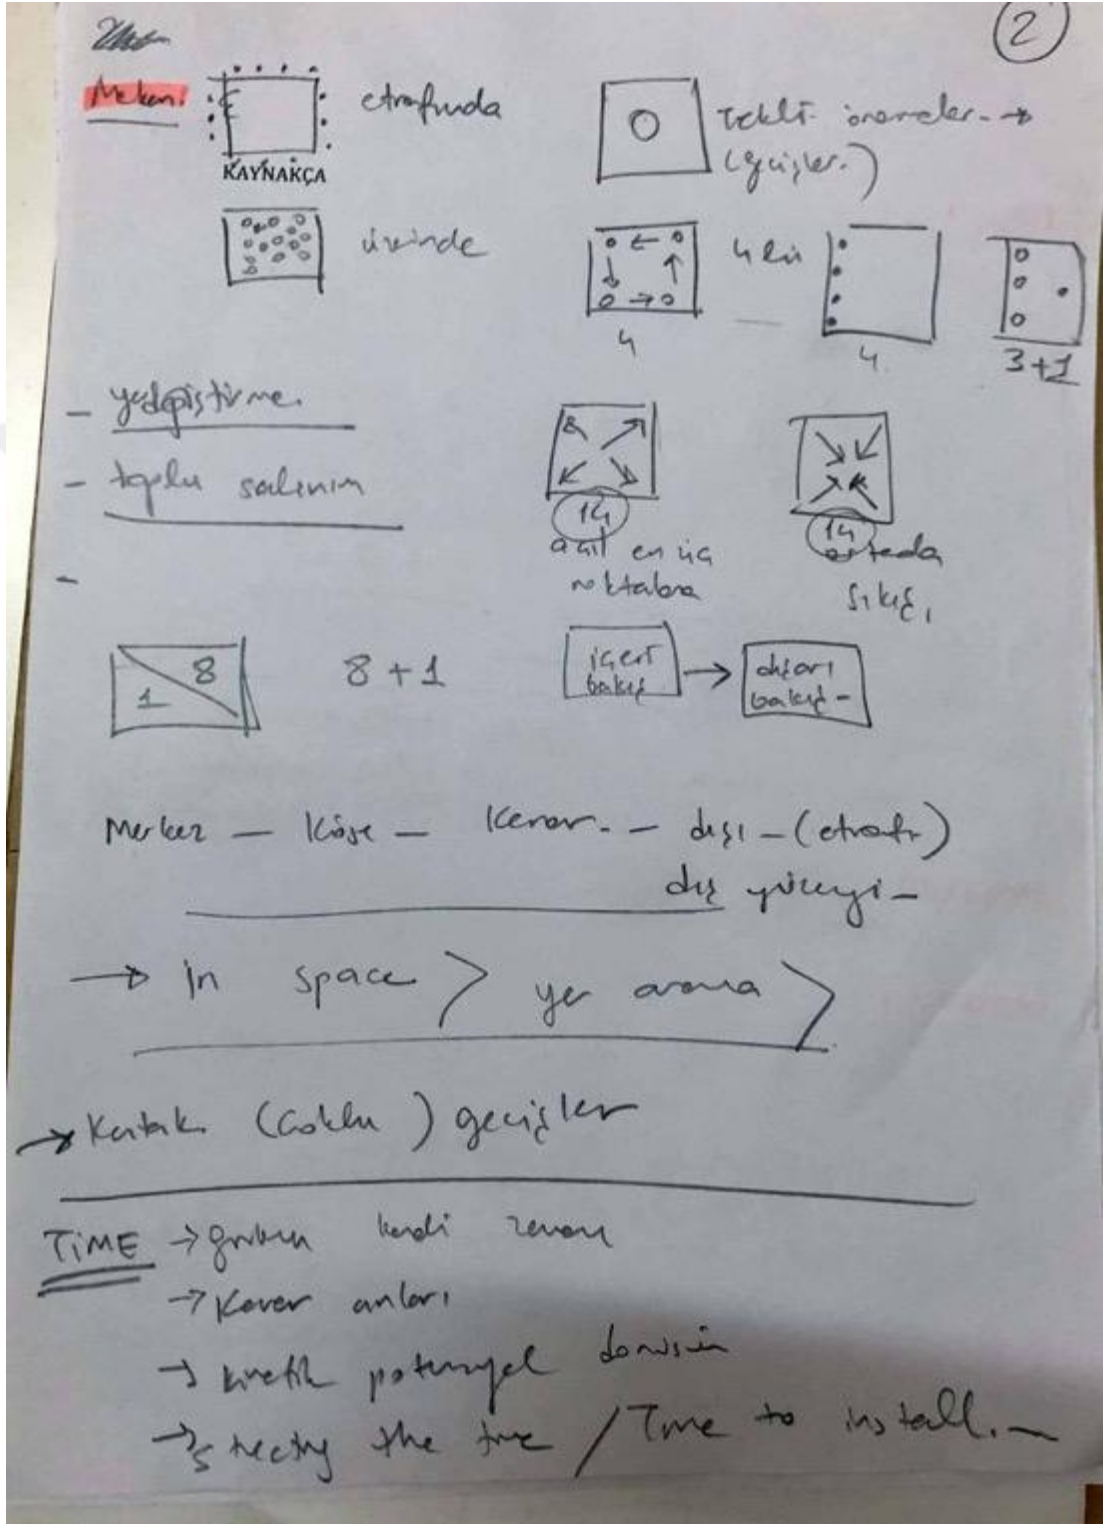 2
Mekan:
etrafında
Tekli önermeler. →
(geçişler.)
KAYNAKÇA
üzerinde
4lü
4
4
3+1
- yerdeğiştirme.
- toplu salınım
-
14
açıl en uç
noktalara
14
ortada
sıkış,
1 8
8 + 1
içeri
bakış
→
dışarı
bakış -
Merkez - Köşe - Kenar. - dışı - (etrafı)
dış yüzeyi -
→ in space > yer arama >
→ Kontak (Çoklu) geçişler
TiME → grubun kendi zamanı
→ Karar anları
→ kinetik potansiyel
→ the time / Time to install. -